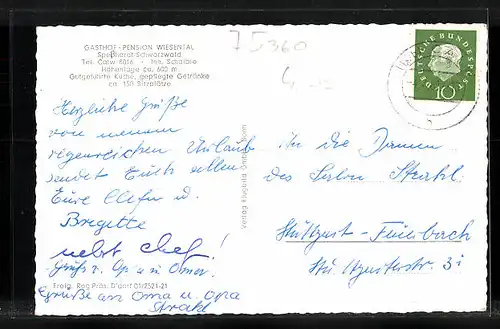 GASTHOF - PENSION WIESENTAL
Speßhardt-Schwarzwald
Tel. Calw 8016 · Inh. Schaible
Höhenlage ca. 600 m
Gutgeführte Küche, gepflegte Getränke
ca. 150 Sitzplätze
75360
DEUTSCHE BUNDESPOST
10
Herzliche Grüße
von meinem
regenreichen Urlaub
sendet Euch allen
Eure Chefin u.
Brigitte
nebst Chef!
Grüße a. Opa u. Oma.
Freig. Reg Präs D'dorf 01/2521-21
Grüße an Oma u. Opa
Strahl
Verlag Flugbild
An die Damen
des Salon Strahl
Stuttgart - Feuerbach
Stuttgarterstr. 31